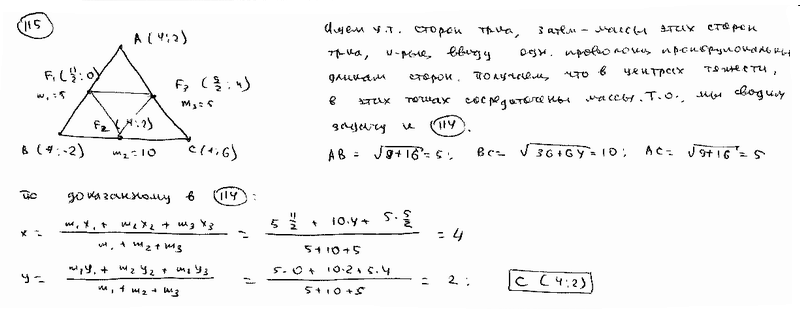 115
A (4; 2)
F₁ (11/2; 0)
m₁=5
F₃ (5/2; 4)
m₃=5
F₂ (4; 2)
B (7; -2)
m₂=10
C (1; 6)
Ищем ц.т. сторон тр-ка, затем – массы этих сторон
тр-ка, к-рые, ввиду одн. проволоки, пропорциональны
длинам сторон. Получаем, что в центрах тяжести,
в этих точках сосредоточены массы. Т.о., мы сводим
задачу к 114.
AB = √9+16 = 5; BC = √36+64 = 10; AC = √9+16 = 5
По доказанному в 114:
x = (m₁x₁ + m₂x₂ + m₃x₃)/(m₁ + m₂ + m₃) = (5·11/2 + 10·4 + 5·5/2)/(5+10+5) = 4
y = (m₁y₁ + m₂y₂ + m₃y₃)/(m₁ + m₂ + m₃) = (5·0 + 10·2 + 5·4)/(5+10+5) = 2; C (4; 2)